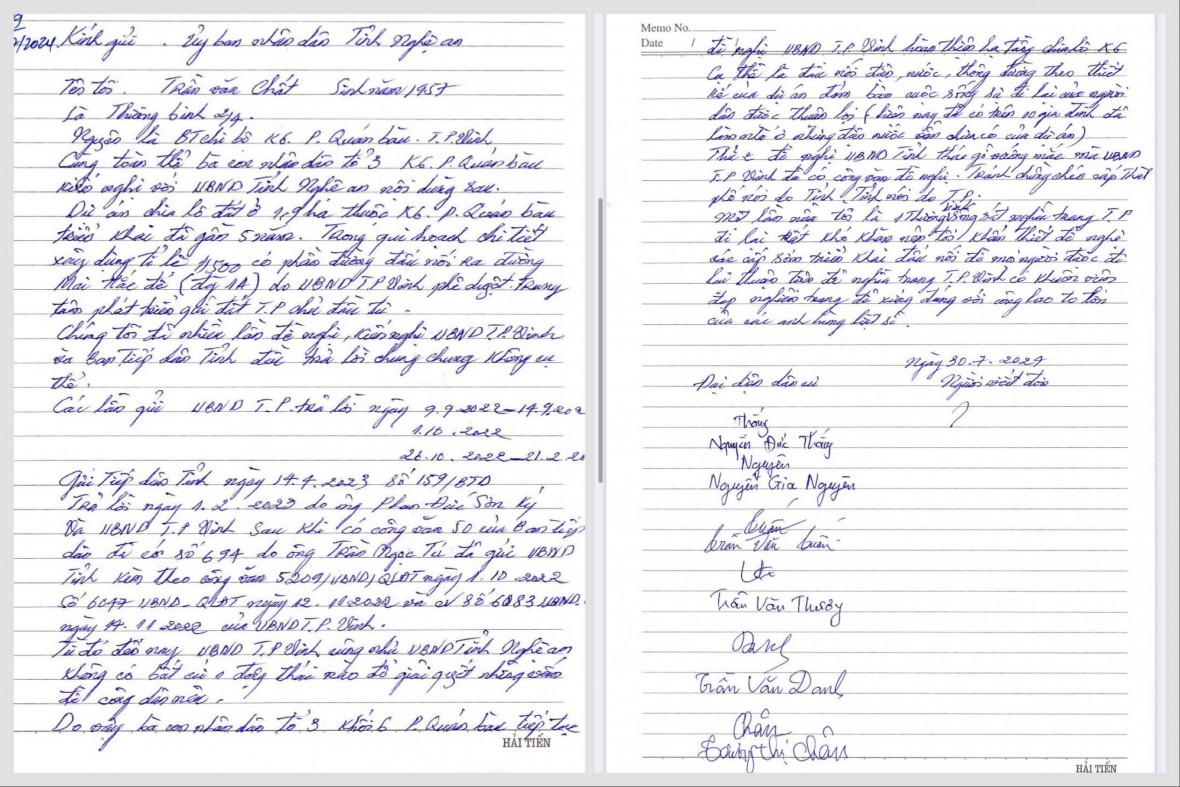 9
7/2024
Kính gửi. Ủy ban nhân dân Tỉnh Nghệ an
Tên tôi. Trần văn Chất Sinh năm 1957
Là Thương binh 2/4.
Nguyên là BT chi bộ K6. P. Quán bàu. T.P Vinh.
Cùng toàn thể bà con nhân dân tổ 3 K6. P. Quán bàu
kiến nghị với UBND Tỉnh Nghệ an nội dung sau.
Dự án chia lô đất ở 1,9 ha thuộc K6. P. Quán bàu
triển khai đã gần 5 năm. Trong qui hoạch chi tiết
xây dựng tỉ lệ 1/500 có phần đường đấu nối ra đường
Mai Hắc đế (đg 1A) do UBND T.P Vinh phê duyệt trung
tâm phát triển quĩ đất T.P chủ đầu tư.
Chúng tôi đã nhiều lần đề nghị, kiến nghị UBND T.P. Vinh
và Ban tiếp dân Tỉnh đều trả lời chung chung không cụ
thể.
Các lần gửi UBND T.P. trả lời ngày 9.9.2022-14.9.202
1.10.2022
26.10.2022-21.2.20
Gửi Tiếp dân Tỉnh ngày 14.4.2023 số 159/BTD
Trả lời ngày 1.2.2023 do ông Phan Đức Sơn ký
Và UBND T.P Vinh sau khi có công văn 50 của Ban tiếp
dân đã có số 694 do ông Trần Ngọc Tú đã gửi UBND
Tỉnh kèm theo công văn 5209/UBND/QLĐT ngày 1.10.2022
Số 6047 UBND-QLĐT ngày 12.11.2022 và cv số 6083 UBND.
ngày 14.11.2022 của UBND T.P. Vinh.
Từ đó đến nay UBND T.P Vinh cũng như UBND Tỉnh Nghệ an
không có bất cứ 1 động thái nào để giải quyết những vấn
đề công dân nêu.
Do vậy bà con nhân dân tổ 3 khối 6 P. Quán bàu tiếp tục
HẢI TIẾN
Memo No.
Date /
đề nghị UBND T.P Vinh hoàn thiện hạ tầng chia lô K6
Cụ thể là đấu nối điện, nước, thông đường theo thiết
kế của dự án đảm bảo cuộc sống và đi lại của người
dân được thuận lợi (hiện nay đã có trên 10 gia đình đã
làm nhà ở nhưng điện nước vẫn chưa có của dự án)
Thứ 2 đề nghị UBND Tỉnh tháo gỡ vướng mắc mà UBND
T.P Vinh đã có công văn đề nghị. Tránh chồng chéo cấp Thành
phố nói do Tỉnh. Tỉnh nói do T.P.
Một lần nữa tôi là 1 Thương binh sống sát nghĩa trang T.P
đi lại rất khó khăn nên tôi khẩn thiết đề nghị
các cấp sớm triển khai đấu nối để mọi người được đi
lại thuận tiện để nghĩa trang T.P. Vinh có khuôn viên
đẹp nghiêm trang để xứng đáng với công lao to lớn
của các anh hùng liệt sĩ.
Ngày 30.7.2024
Đại diện dân cư Người viết đơn
Thắng
Nguyễn Đức Thắng
Nguyên
Nguyễn Gia Nguyên
Trần Văn
Trần Văn
Danh
Trần Văn Danh
Chân
Thị Chân
HẢI TIẾN